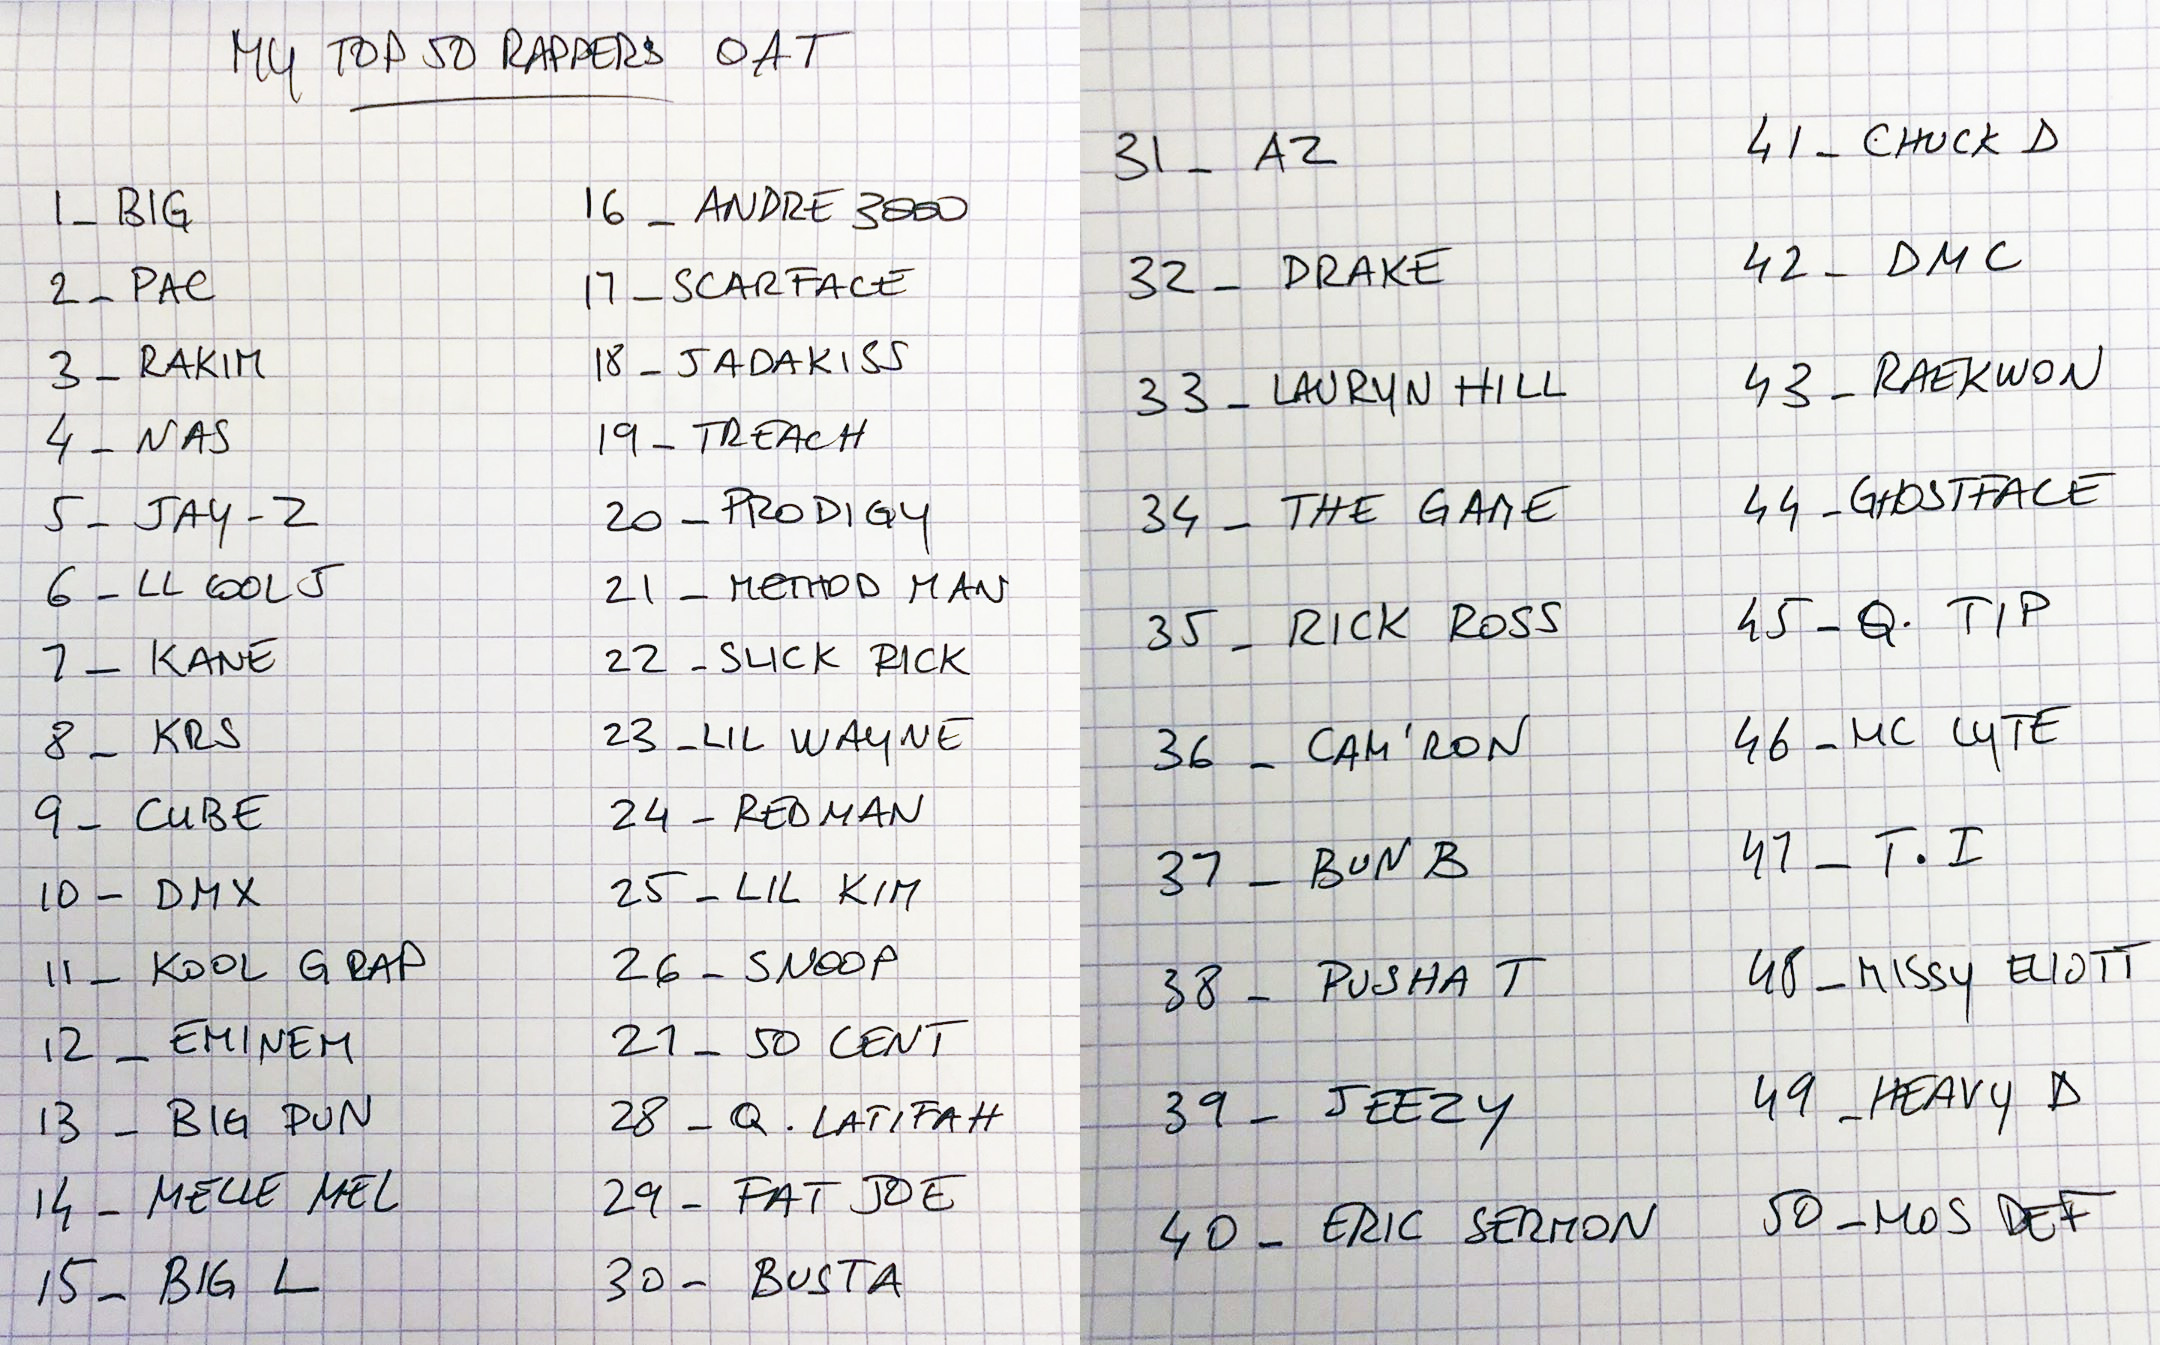 MY TOP 50 RAPPERS OAT
1_ BIG
2_ PAC
3_ RAKIM
4_ NAS
5_ JAY-Z
6_ LL COOL J
7_ KANE
8_ KRS
9_ CUBE
10_ DMX
11_ KOOL G RAP
12_ EMINEM
13_ BIG PUN
14_ MELLE MEL
15_ BIG L
16_ ANDRE 3000
17_ SCARFACE
18_ JADAKISS
19_ TREACH
20_ PRODIGY
21_ METHOD MAN
22_ SLICK RICK
23_ LIL WAYNE
24_ REDMAN
25_ LIL KIM
26_ SNOOP
27_ 50 CENT
28_ Q. LATIFAH
29_ FAT JOE
30_ BUSTA
31_ AZ
32_ DRAKE
33_ LAURYN HILL
34_ THE GAME
35_ RICK ROSS
36_ CAM'RON
37_ BUN B
38_ PUSHA T
39_ JEEZY
40_ ERIC SERMON
41_ CHUCK D
42_ DMC
43_ RAEKWON
44_ GHOSTFACE
45_ Q. TIP
46_ MC LYTE
47_ T.I
48_ MISSY ELIOTT
49_ HEAVY D
50_ MOS DEF